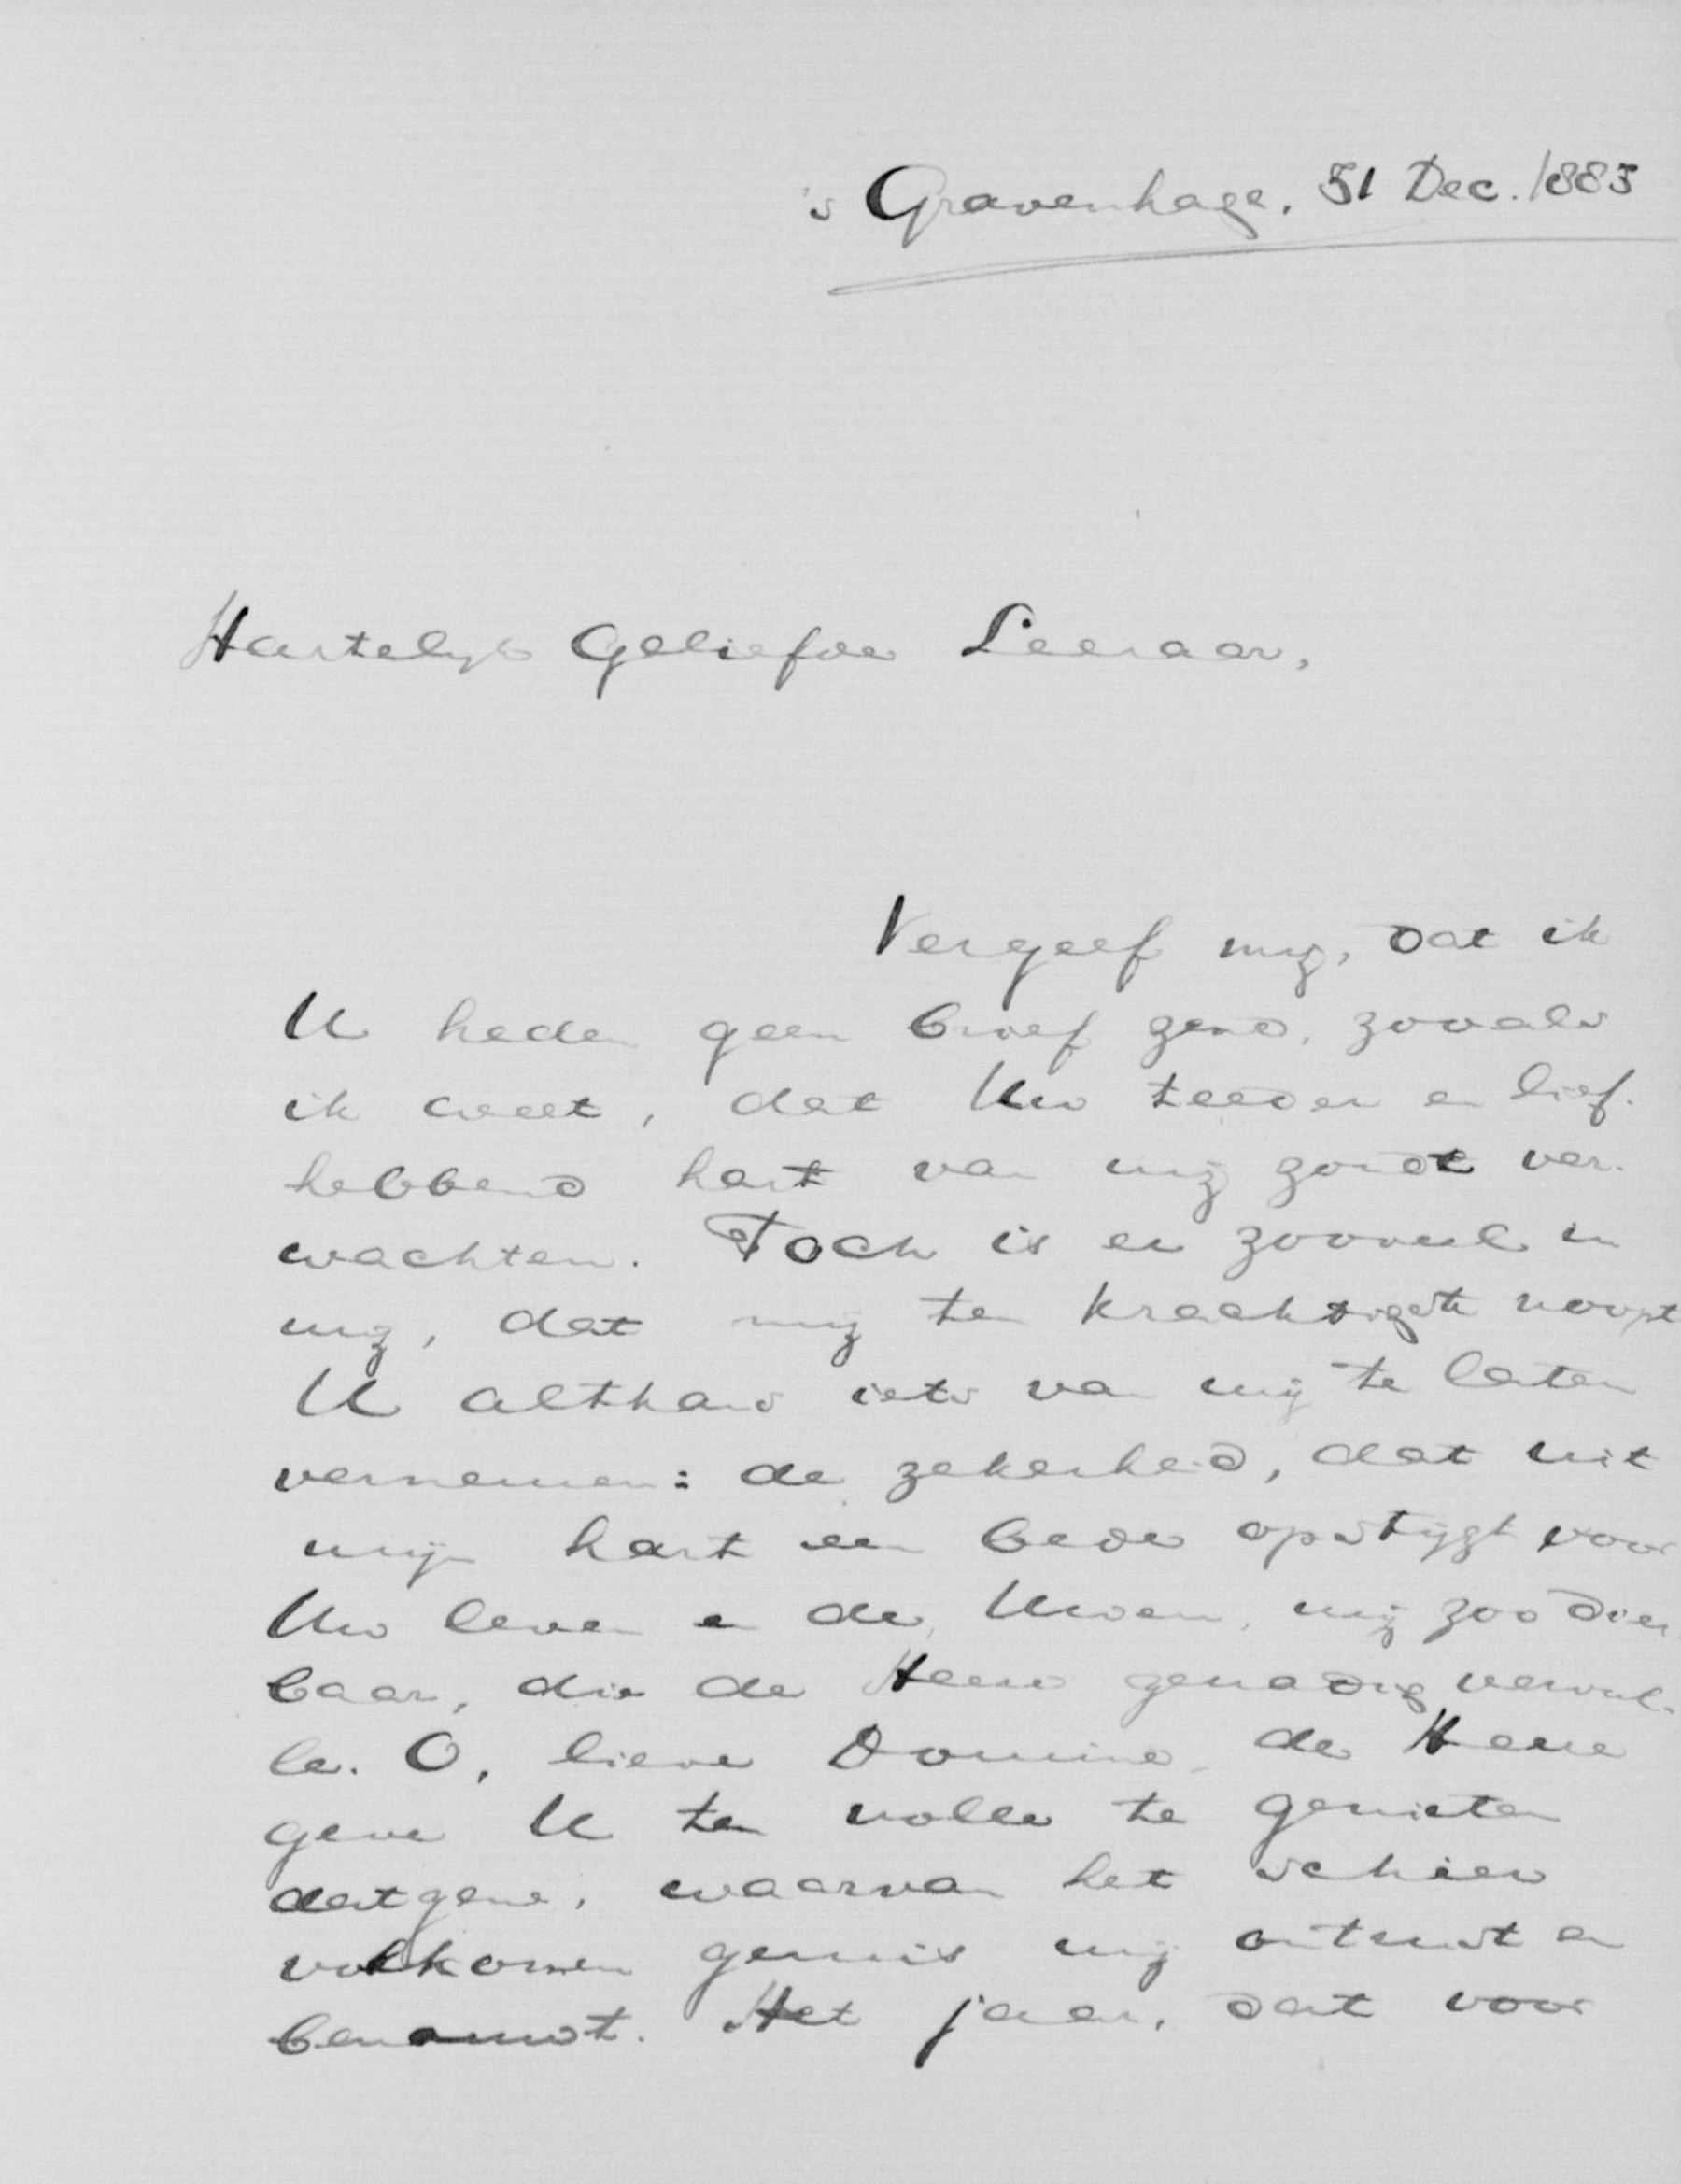 's Gravenhage, 31 Dec. 1883
Hartelijk Geliefde Leeraar,
Vergeef mij, dat ik
U heden geen brief zend, zooals
ik weet, dat Uw teeder en lief-
hebbend hart van mij zoudt ver-
wachten. Toch is er zooveel in
mij, dat mij ten krachtigste noopt
U althans iets van mij te laten
vernemen: de zekerheid, dat uit
mijn hart een bede opstijgt voor
Uw leven en de Uwen, mij zoo dier-
baar, die de Heere genadig vervul-
le. O, lieve Domine, de Heere
geve U ten volle te genieten
datgene, waarvan het schier
volkomen gemis mij ontrust en
benauwt. Het jaar, dat voor